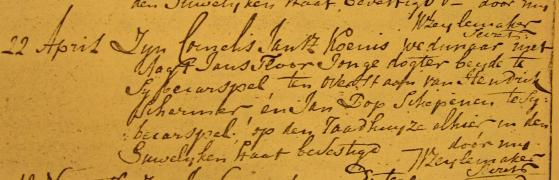 den Huwelyken Staat bevestigd door my
WZeylemaker
Secrets
22 April Zyn Cornelis Jansz Koenis wedunaar met
Aagt Jans Floor Jonge dogter beyde te
Sybecarspel ten overstaan van Hendrik
Schermer en Jan Dop Schepenen te Sy-
becarspel op den Raadhuyze alhier in den
Huwelyken Staat bevestigd door my
WZeylemaker
Secrets